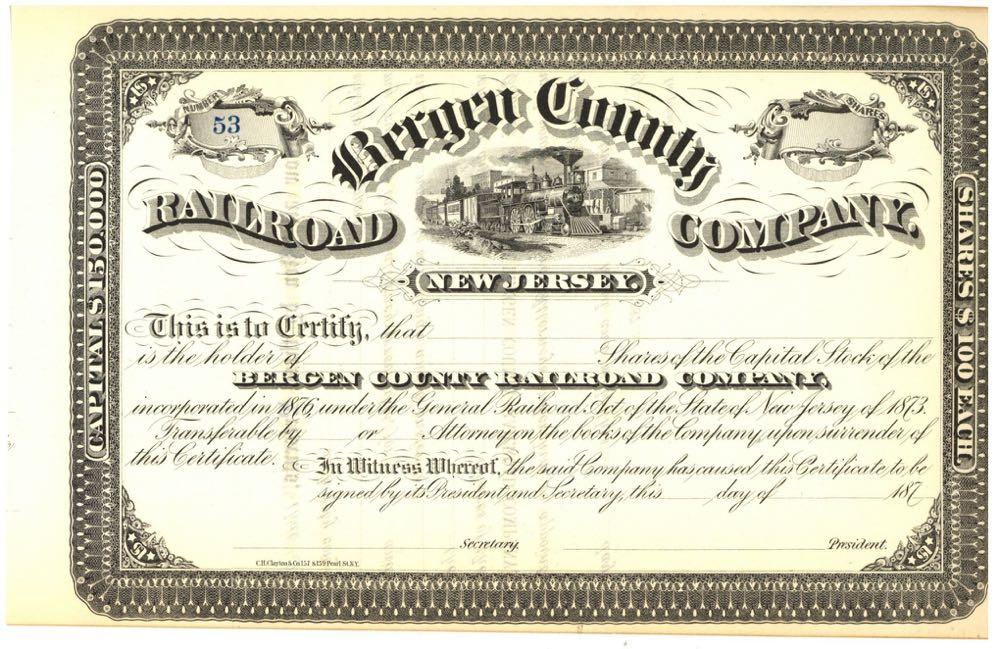 NUMBER
53
SHARES
Bergen County
RAILROAD COMPANY.
NEW JERSEY.
CAPITAL $150,000
SHARES $100 EACH.
This is to Certify, that
is the holder of Shares of the Capital Stock of the
BERGEN COUNTY RAILROAD COMPANY,
incorporated in 1876, under the General Railroad Act of the State of New Jersey of 1873.
Transferable by or Attorney on the books of the Company, upon surrender of
this Certificate.
In Witness Whereof, the said Company has caused this Certificate to be
signed by its President and Secretary, this day of 187
Secretary.
President.
C.H. Clayton & Co 157 & 159 Pearl St. N.Y.